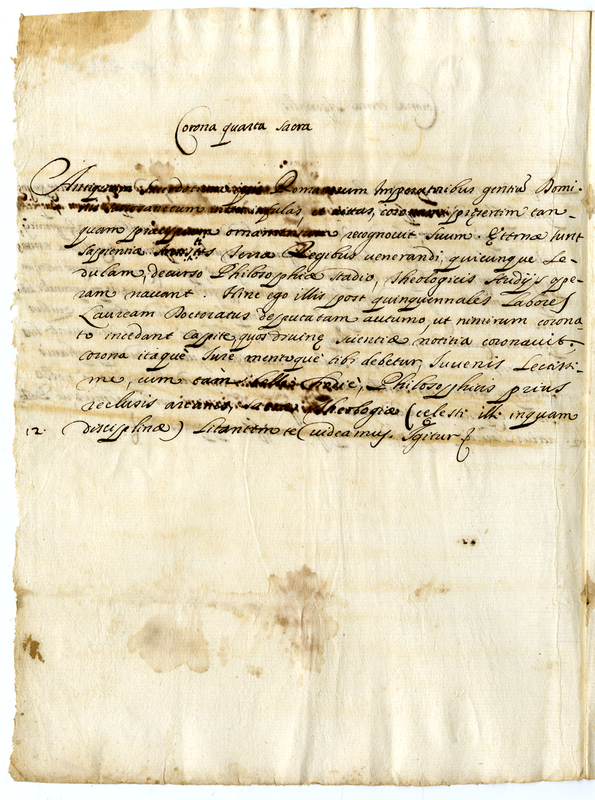 Corona quarta sacra
Romanorum Imperatoribus gentiū Domi-
infulas, vittas, coronam prętertim tan-
quam ornamentum recognovit suum.
Sapientia Terræ Regibus venerandi, quicunque se-
dulam, decurso Philosophiæ stadio, Theologicis Studijs ope-
ram navant. Hinc ego illis post quinquennales Labores
Lauream Doctoratus despicatam autumo, ut nimirum corona-
to incedant Capite, quos divinę scientiæ notitia coronavit.
Corona itaquè Jure meritoquè tibi debetur, Juvenis Lectissi-
me, cum hodiè, Philosophicis prius
reclusis arcanis, Sacræ Theologiæ (cęlesti illi inquam
12. disciplinæ) Litantem te videamus. Igitur &